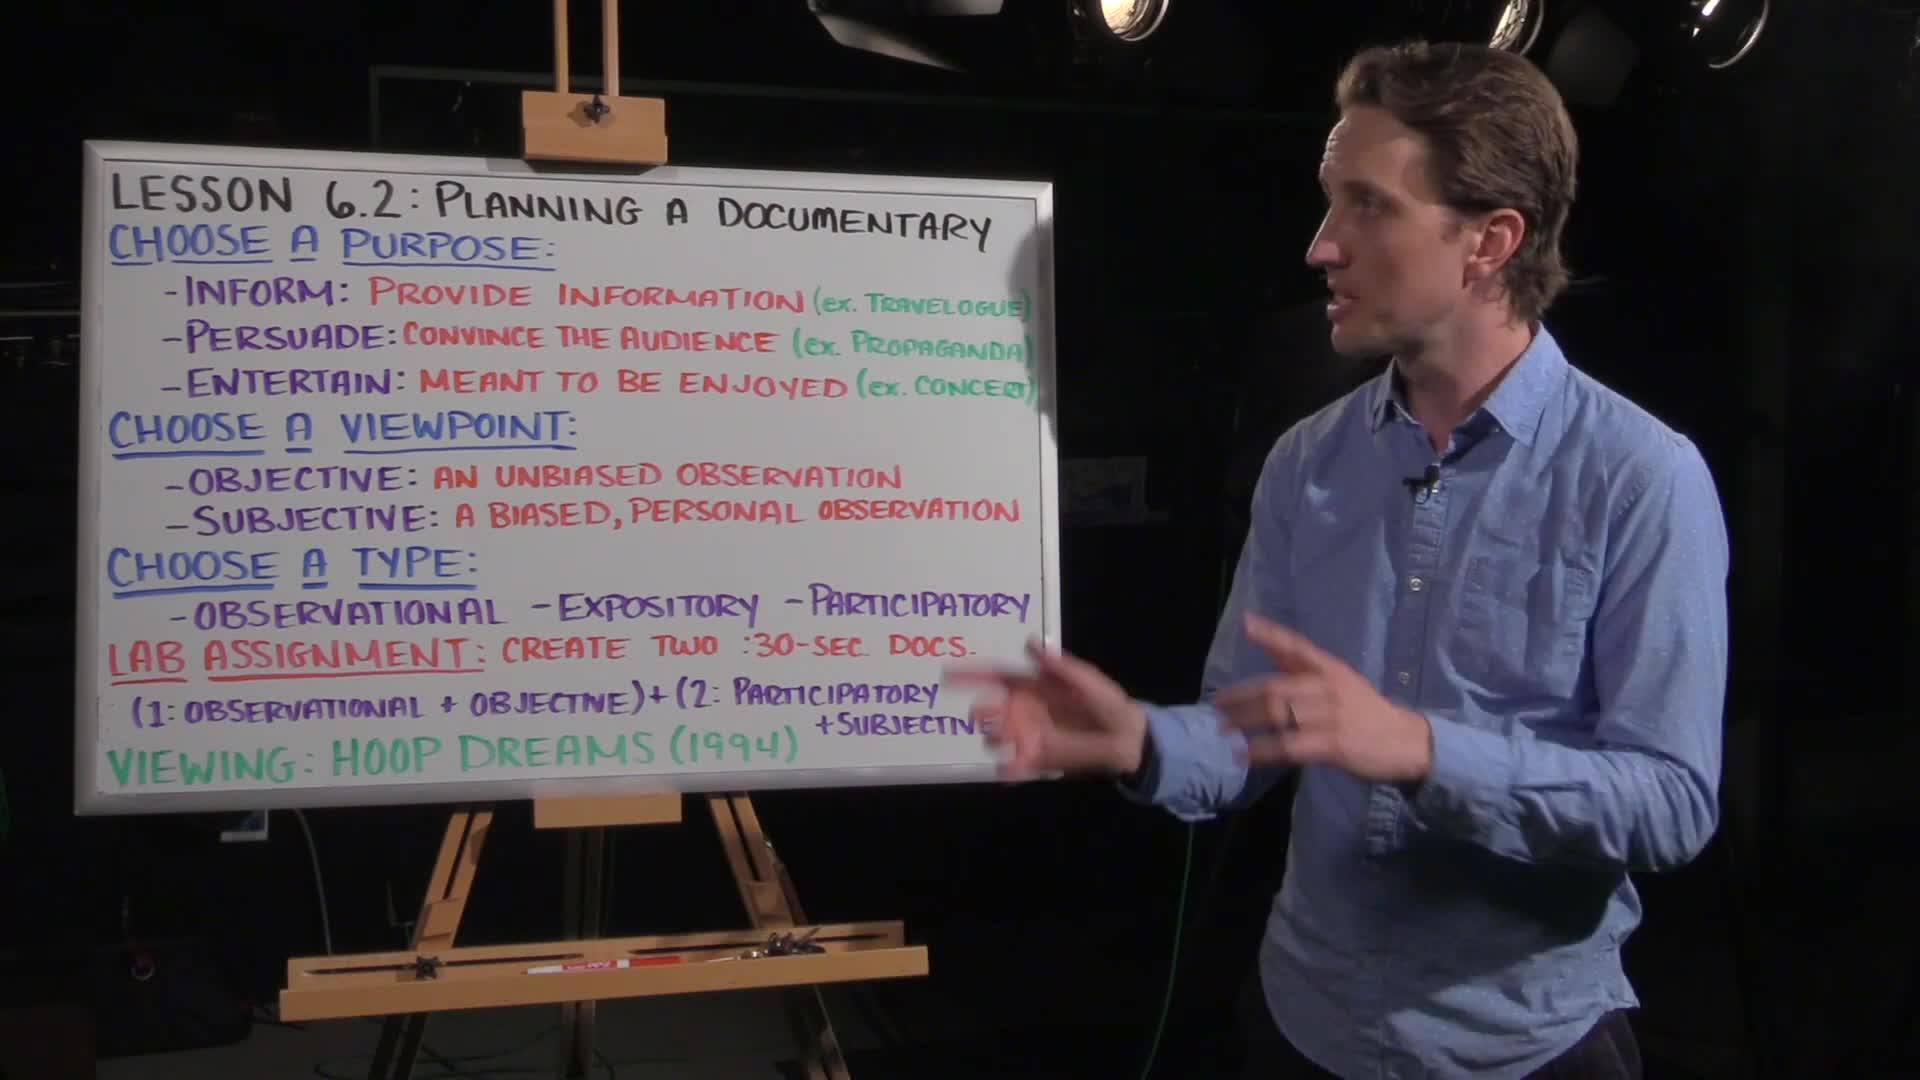 LESSON 6.2: PLANNING A DOCUMENTARY
CHOOSE A PURPOSE:
-INFORM: PROVIDE INFORMATION (ex. TRAVELOGUE)
-PERSUADE: CONVINCE THE AUDIENCE (ex. PROPAGANDA)
-ENTERTAIN: MEANT TO BE ENJOYED (ex. CONCERT)
CHOOSE A VIEWPOINT:
-OBJECTIVE: AN UNBIASED OBSERVATION
-SUBJECTIVE: A BIASED, PERSONAL OBSERVATION
CHOOSE A TYPE:
-OBSERVATIONAL -EXPOSITORY -PARTICIPATORY
LAB ASSIGNMENT: CREATE TWO :30-SEC DOCS.
(1: OBSERVATIONAL + OBJECTIVE) + (2: PARTICIPATORY
+SUBJECTIVE
VIEWING: HOOP DREAMS (1994)